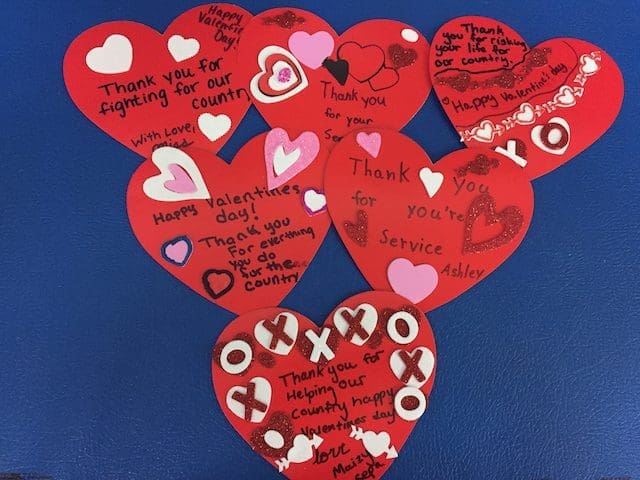 Happy
Valentines
Day!
Thank you for
fighting for our
country
With Love,
Thank you
for your
Thank
you for risking
your life for
our country.
Happy Valentine's day
YO
Happy Valentines
day!
Thank you
For everything
you do
for the
Country
Thank you
for you're
Service
Ashley
O X X O
X X
X O
O
Thank you for
Helping our
Country happy
Valentines day
love
Maizy